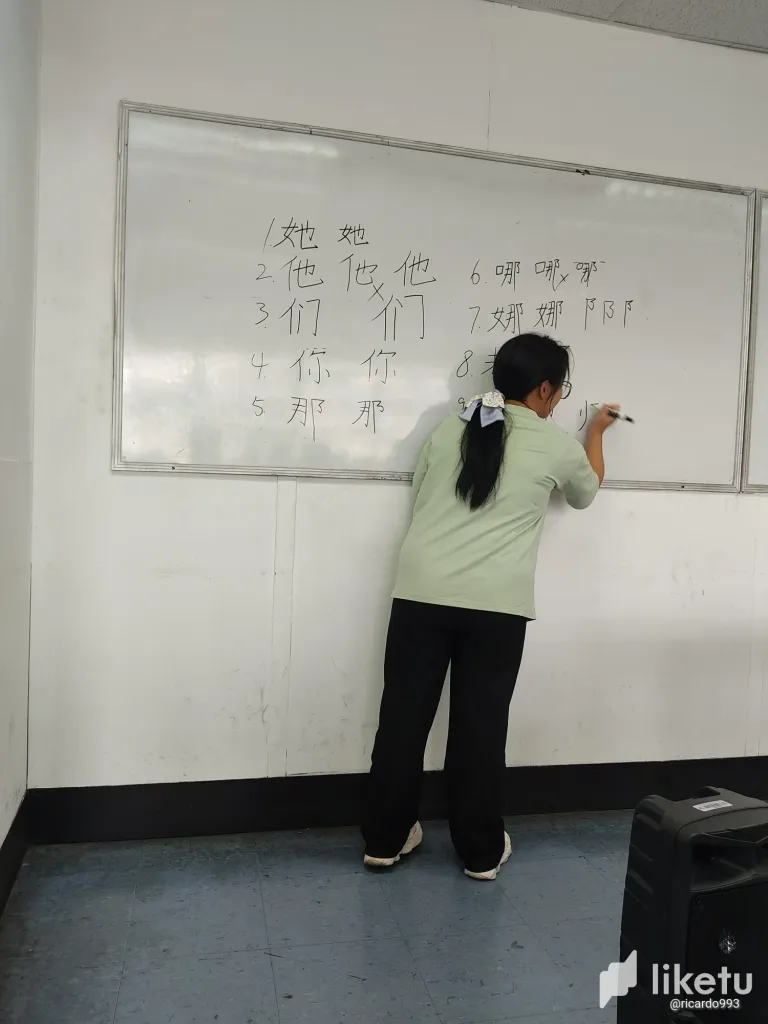 1. 她 她
2. 他 他 他
3. 们 们
4. 你 你
5. 那 那
6. 哪 哪 哪
7. 娜 娜 阝阝阝
8.
9
liketu
@ricardo993